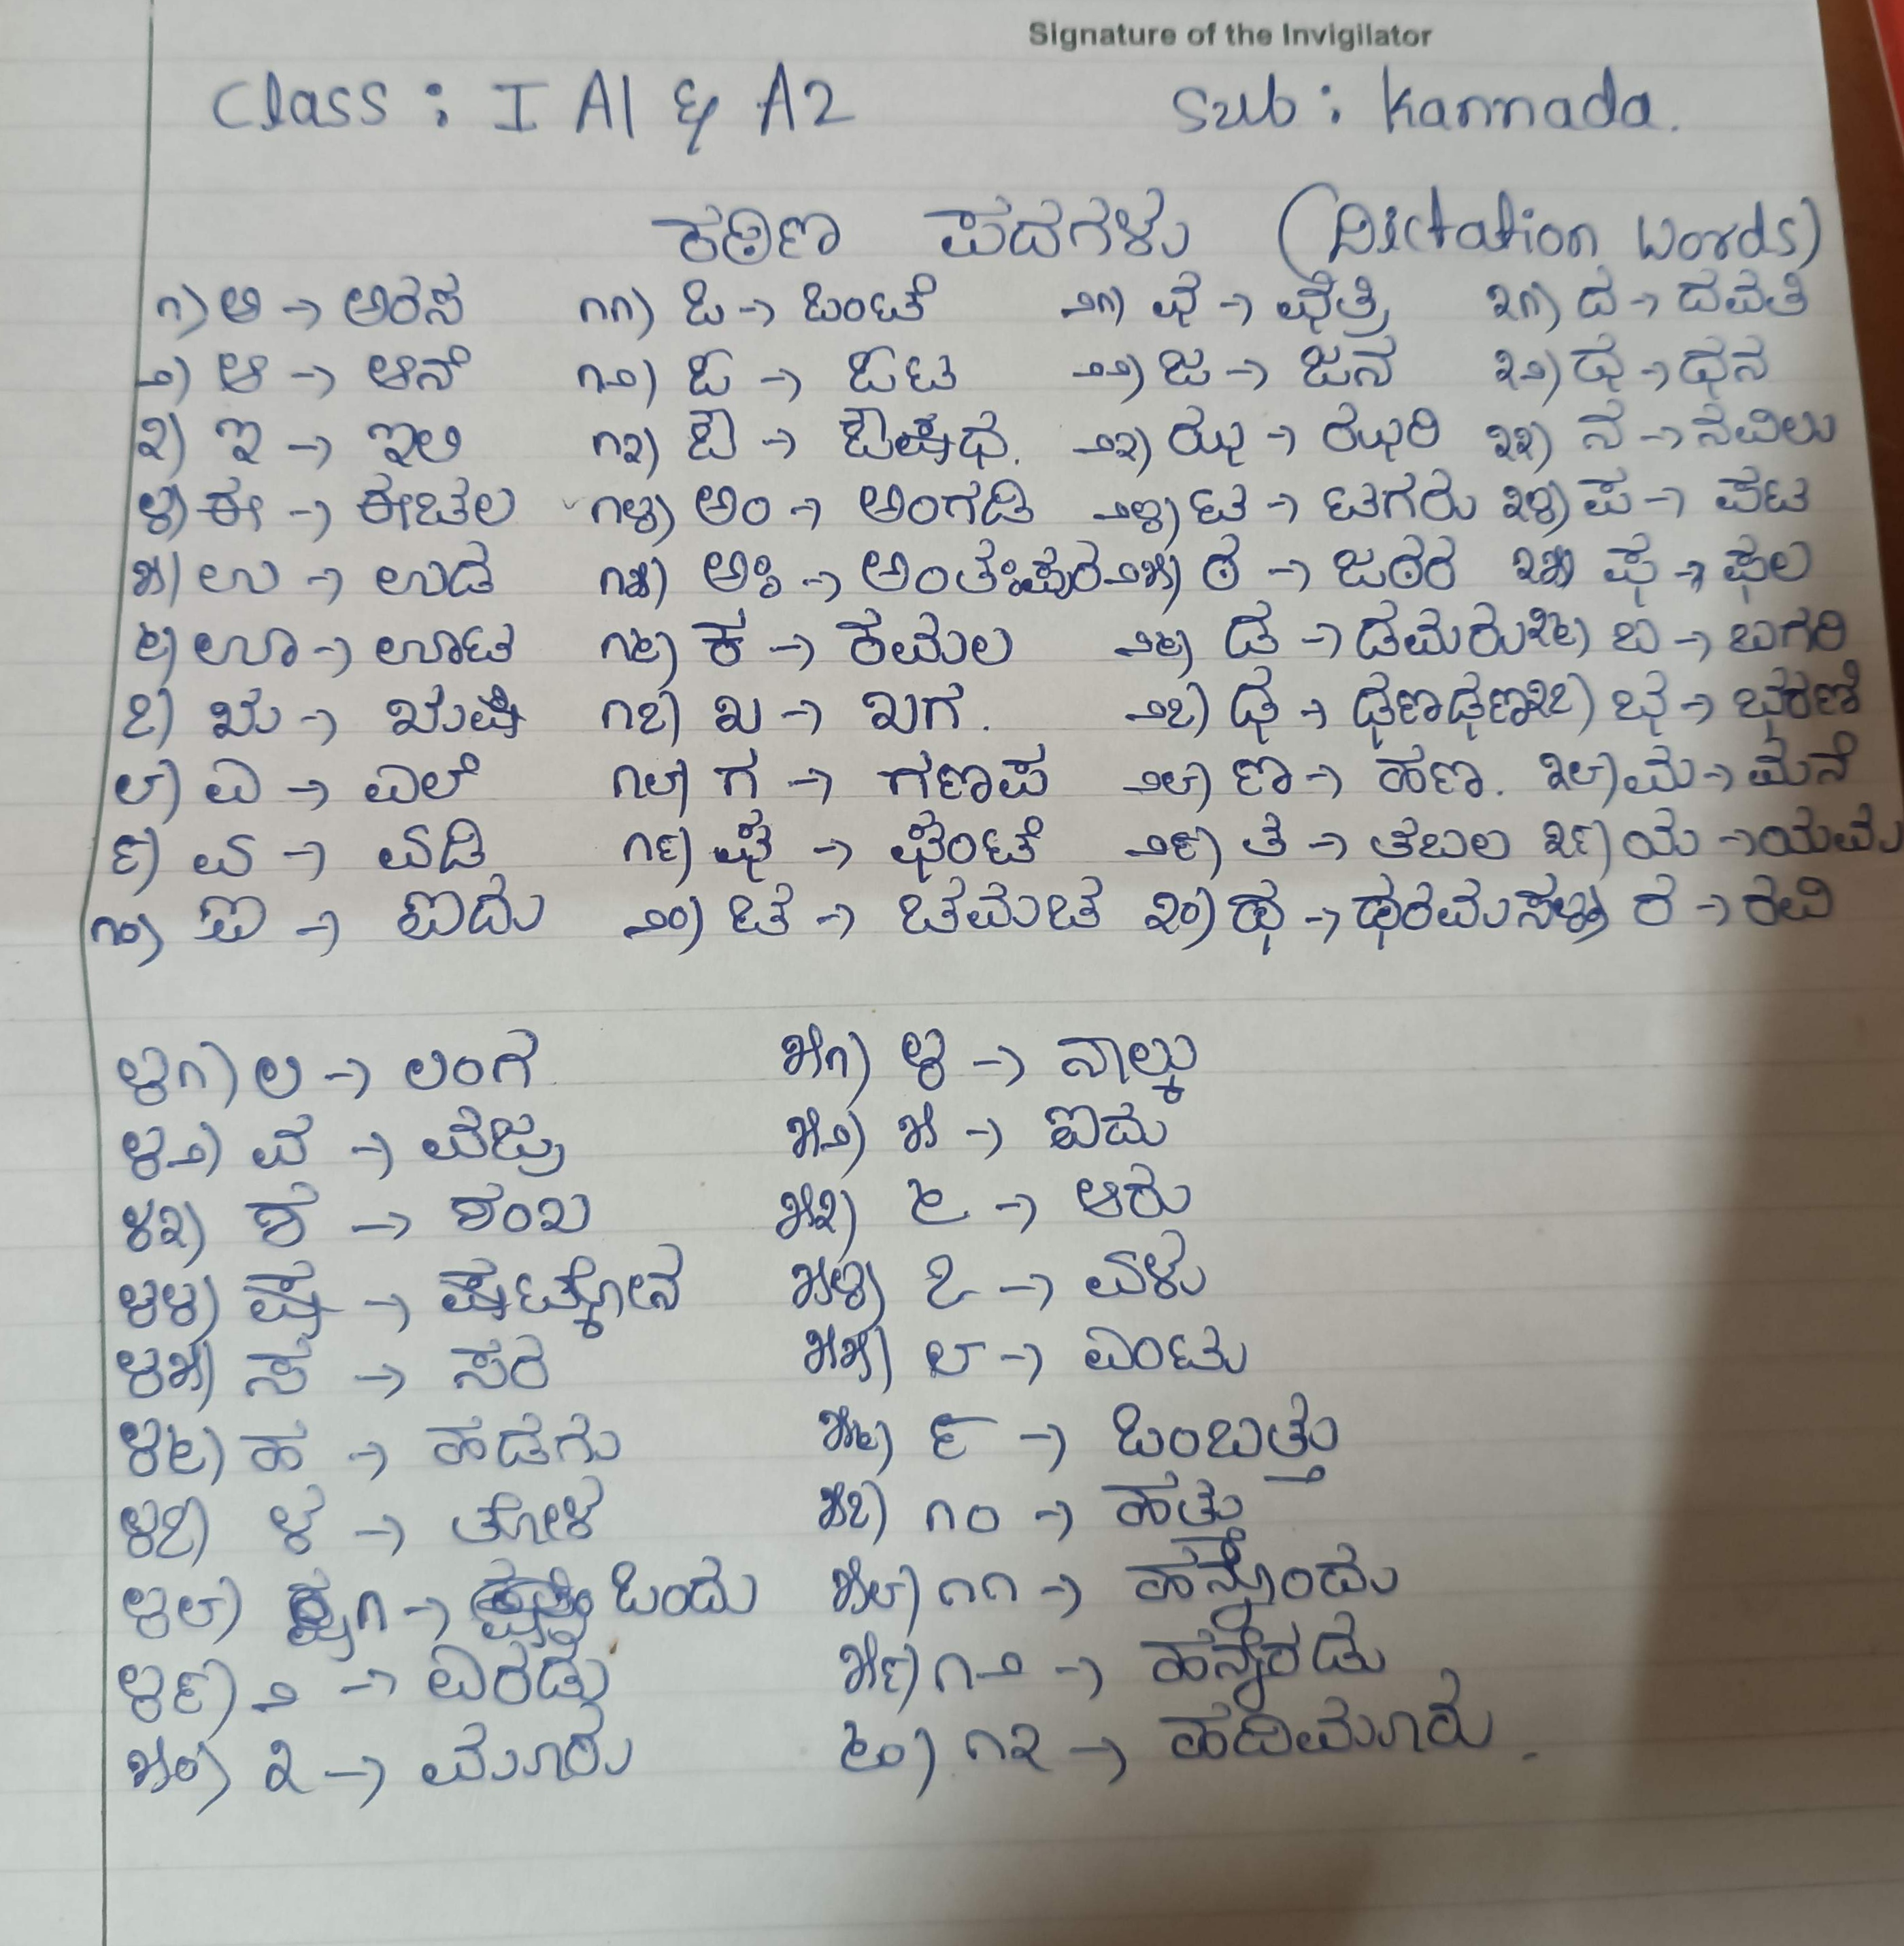 Signature of the Invigilator
Class : I A1 & A2 Sub : Kannada.
ಕಠಿಣ ಪದಗಳು (Dictation words)
೧) ಅ → ಅರಸ ೧೧) ಒ → ಒಂಟೆ ೨೧) ಛ → ಛತ್ರಿ ೩೧) ದ → ದವತಿ
೨) ಆ → ಆನೆ ೧೨) ಓ → ಓಟ ೨೨) ಜ → ಜನ ೩೨) ಧ → ಧನ
೩) ಇ → ಇಲಿ ೧೩) ಔ → ಔಷಧ. ೨೩) ಝ → ಝರಿ ೩೩) ನ → ನವಿಲು
೪) ಈ → ಈಚಲ ೧೪) ಅಂ → ಅಂಗಡಿ ೨೪) ಟ → ಟಗರು ೩೪) ಪ → ಪಟ
೫) ಉ → ಉಡ ೧೫) ಅಃ → ಅಂತಃಪುರ ೨೫) ಠ → ಜಠರ ೩೫) ಫ → ಫಲ
೬) ಊ → ಊಟ ೧೬) ಕ → ಕಮಲ ೨೬) ಡ → ಡಮರು ೩೬) ಬ → ಬಗರಿ
೭) ಋ → ಋಷಿ ೧೭) ಖ → ಖಗ. ೨೭) ಢ → ಢಣಢಣ ೩೭) ಭ → ಭರಣಿ
೮) ಎ → ಎಲೆ ೧೮) ಗ → ಗಣಪ ೨೮) ಣ → ಹಣ. ೩೮) ಮ → ಮನೆ
೯) ಏ → ಏಡಿ ೧೯) ಘ → ಘಂಟೆ ೨೯) ತ → ತಬಲ ೩೯) ಯ → ಯಮ
೧೦) ಐ → ಐದು ೨೦) ಚ → ಚಮಚ ೩೦) ಥ → ಥರಮಸ ೪೦) ರ → ರವಿ
೪೧) ಲ → ಲಂಗ ೫೧) ೪ → ನಾಲ್ಕು
೪೨) ವ → ವಜ್ರ ೫೨) ೫ → ಐದು
೪೩) ಶ → ಶಂಖ ೫೩) ೬ → ಆರು
೪೪) ಷ → ಷಟ್ಕೋನ ೫೪) ೭ → ಏಳು
೪೫) ಸ → ಸರ ೫೫) ೮ → ಎಂಟು
೪೬) ಹ → ಹಡಗು ೫೬) ೯ → ಒಂಬತ್ತು
೪೭) ಳ → ತೋಳ ೫೭) ೧೦ → ಹತ್ತು
೪೮) ೧ → ಒಂದು ೫೮) ೧೧ → ಹನ್ನೊಂದು
೪೯) ೨ → ಎರಡು ೫೯) ೧೨ → ಹನ್ನೆರಡು
೫೦) ೩ → ಮೂರು ೬೦) ೧೩ → ಹದಿಮೂರು.